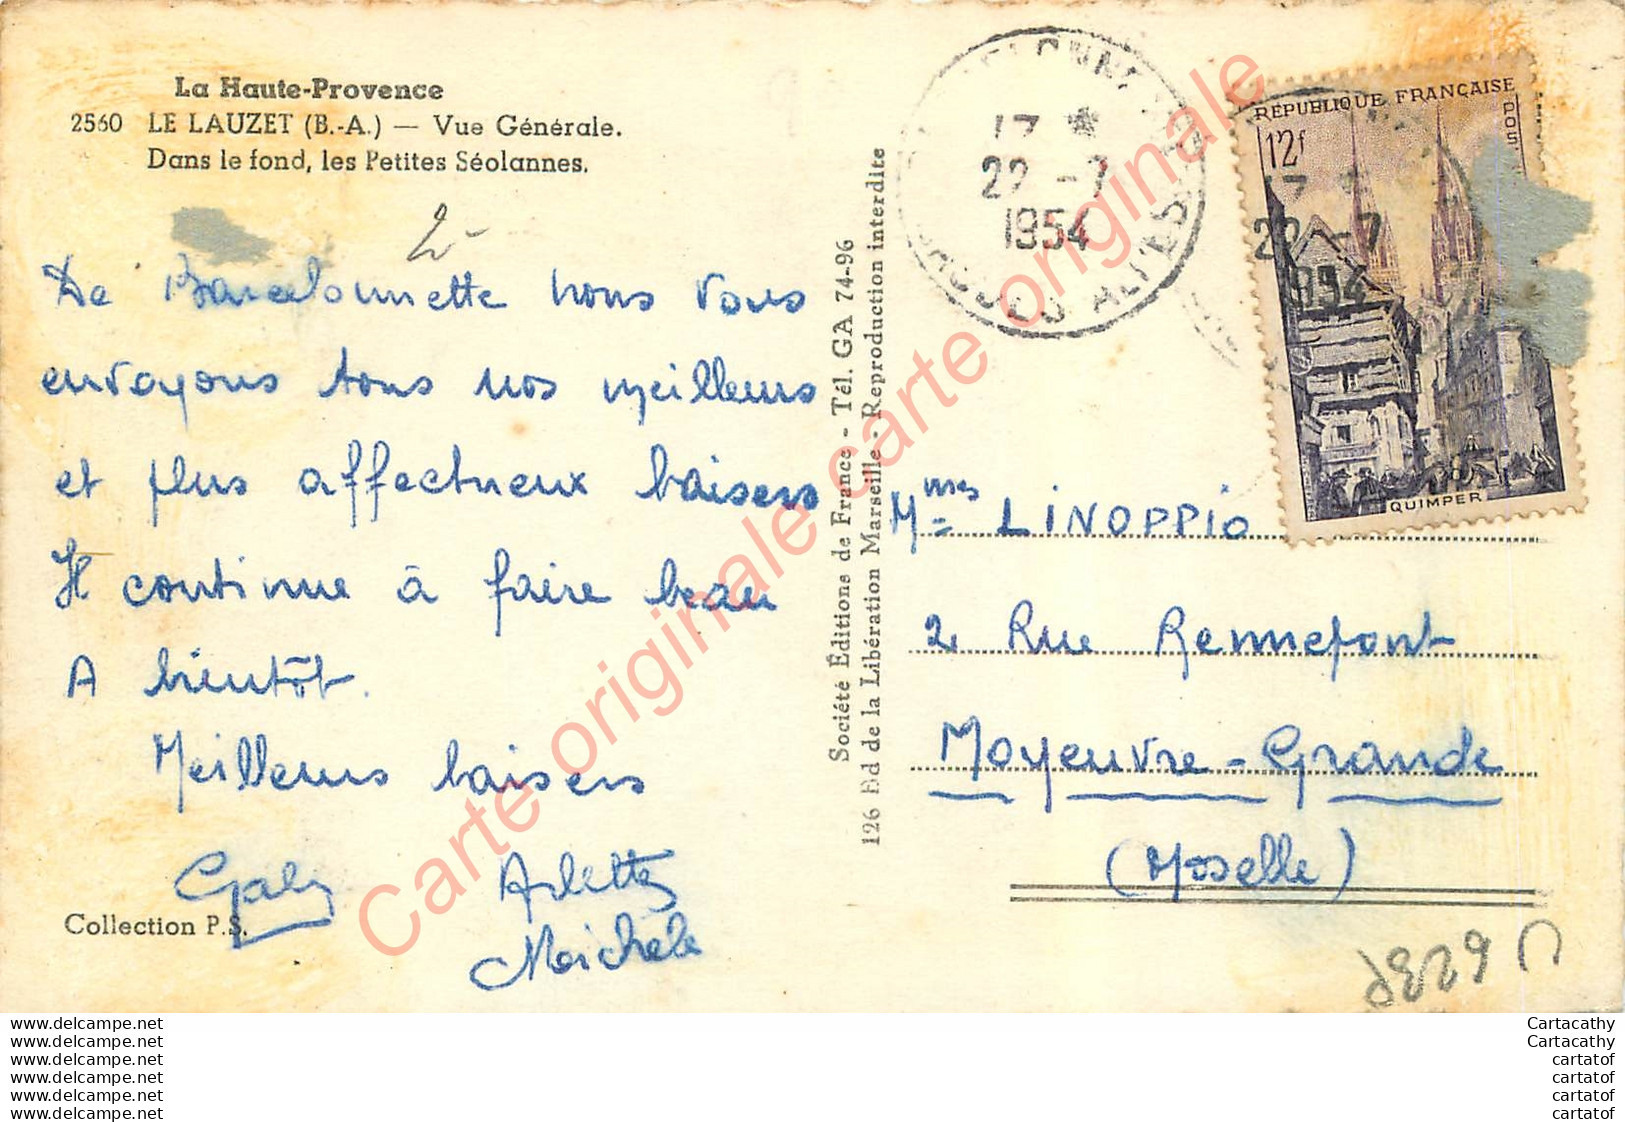 La Haute-Provence
2560 LE LAUZET (B.-A.) — Vue Générale.
Dans le fond, les Petites Séolannes.
2-
De Barcelonnette nous vous
envoyons tous nos meilleurs
et plus affectueux baisers
Il continue à faire beau
A bientôt.
Meilleurs baisers
Gaby Arlette
Michele
Collection P.S.
Société Éditions de France - Tél. GA 74-96
126 Bd de la Libération Marseille - Reproduction interdite
17 *
22 - 7
1954
BASSES ALPES
RÉPUBLIQUE FRANÇAISE
12f
POS
17
22 - 7
1954
QUIMPER
Mmes LINOPPIO
2 Rue Rennefont
Moyeuvre-Grande
(Moselle)
Carte originale carte originale
www.delcampe.net
www.delcampe.net
www.delcampe.net
www.delcampe.net
www.delcampe.net
www.delcampe.net
Cartacathy
Cartacathy
cartatof
cartatof
cartatof
cartatof